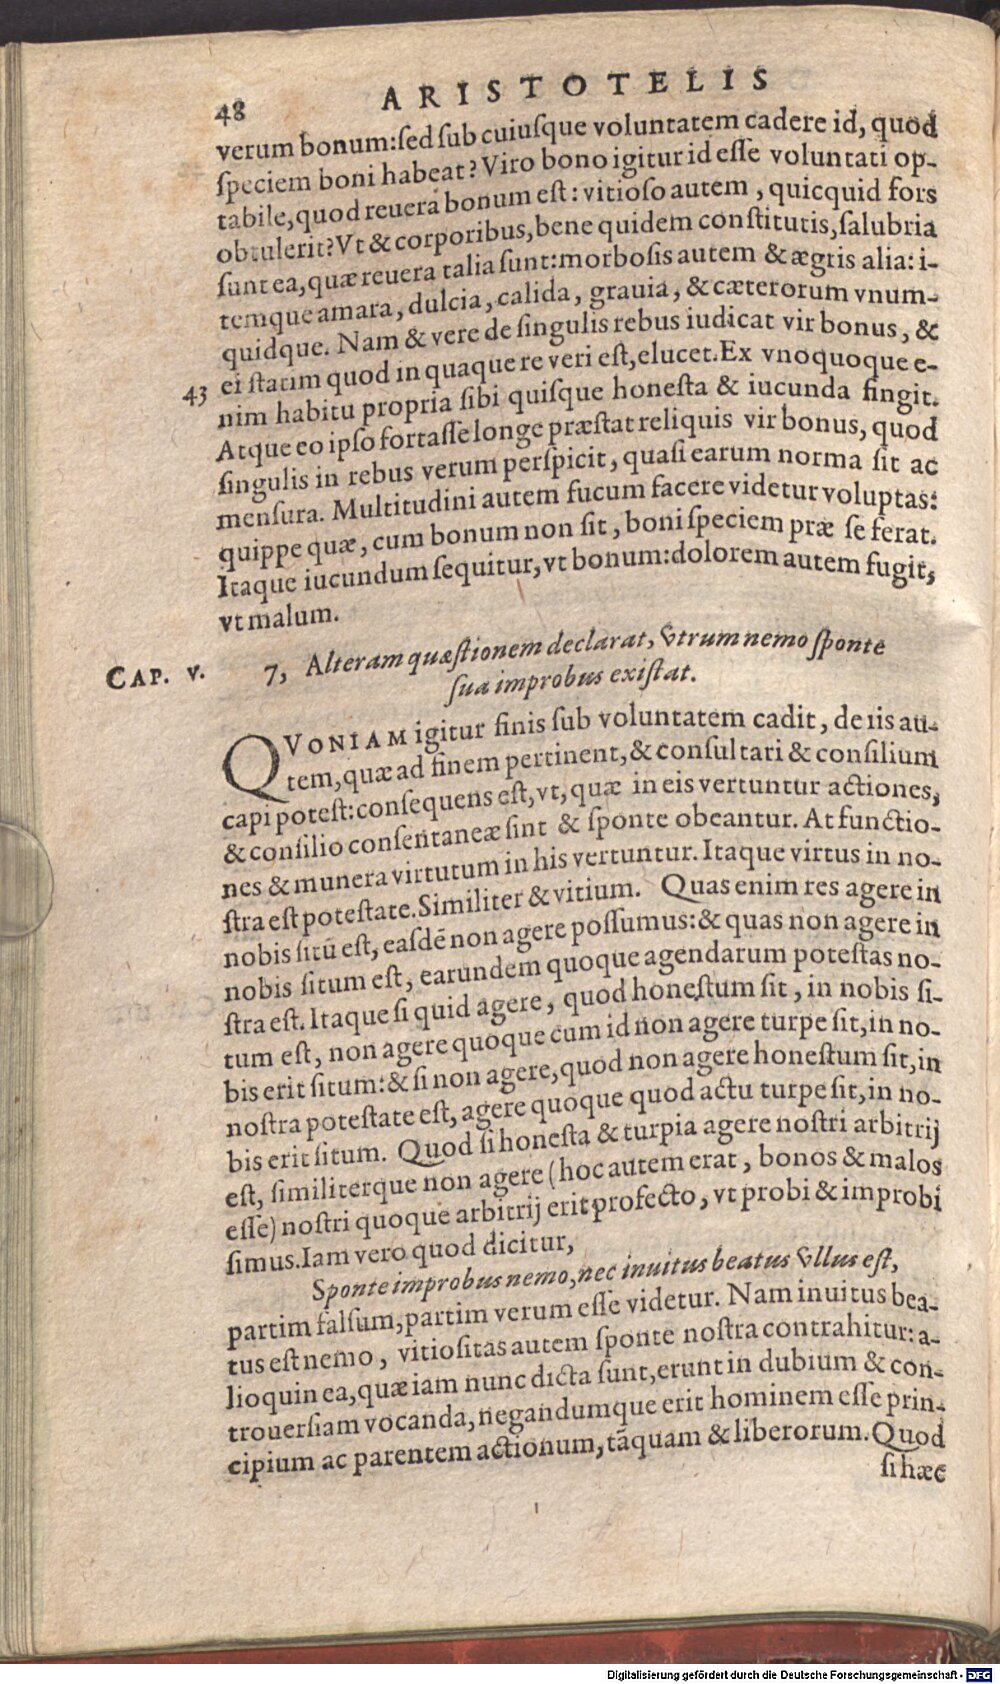 48 ARISTOTELIS
verum bonum:ſed ſub cuiuſque voluntatem cadere id, quod
ſpeciem boni habeat? Viro bono igitur id eſſe voluntati op-
tabile, quod reuera bonum eſt: vitioſo autem, quicquid fors
obtulerit? Vt & corporibus, bene quidem conſtitutis, ſalubria
ſunt ea, quæ reuera talia ſunt: morboſis autem & ægris alia: i-
temque amara, dulcia, calida, grauia, & cæterorum vnum-
quidque. Nam & vere de ſingulis rebus iudicat vir bonus, &
ei ſtatim quod in quaque re veri eſt, elucet. Ex vnoquoque e-
43 nim habitu propria ſibi quiſque honeſta & iucunda fingit.
Atque eo ipſo fortaſſe longe præſtat reliquis vir bonus, quod
ſingulis in rebus verum perſpicit, quaſi earum norma ſit ac
menſura. Multitudini autem fucum facere videtur voluptas:
quippe quæ, cum bonum non ſit, boni ſpeciem præ ſe ferat.
Itaque iucundum ſequitur, vt bonum: dolorem autem fugit,
vt malum.
CAP. V. 7, Alteram quæſtionem declarat, vtrum nemo ſponte
ſua improbus exiſtat.
QVONIAM igitur finis ſub voluntatem cadit, de iis au-
tem, quæ ad finem pertinent, & conſultari & conſilium
capi poteſt: conſequens eſt, vt, quæ in eis vertuntur actiones,
& conſilio conſentaneæ ſint & ſponte obeantur. At functio-
nes & munera virtutum in his vertuntur. Itaque virtus in no-
ſtra eſt poteſtate. Similiter & vitium. Quas enim res agere in
nobis ſitū eſt, eaſdē non agere poſſumus: & quas non agere in
nobis ſitum eſt, earundem quoque agendarum poteſtas no-
ſtra eſt. Itaque ſi quid agere, quod honeſtum ſit, in nobis ſi-
tum eſt, non agere quoque cum id non agere turpe ſit, in no-
bis erit ſitum: & ſi non agere, quod non agere honeſtum ſit, in
noſtra poteſtate eſt, agere quoque quod actu turpe ſit, in no-
bis erit ſitum. Quod ſi honeſta & turpia agere noſtri arbitrij
eſt, ſimiliterque non agere (hoc autem erat, bonos & malos
eſſe) noſtri quoque arbitrij erit profecto, vt probi & improbi
ſimus. Iam vero quod dicitur,
Sponte improbus nemo, nec inuitus beatus vllus eſt,
partim falſum, partim verum eſſe videtur. Nam inuitus bea-
tus eſt nemo, vitioſitas autem ſponte noſtra contrahitur: a-
lioquin ea, quæ iam nunc dicta ſunt, erunt in dubium & con-
trouerſiam vocanda, negandumque erit hominem eſſe prin-
cipium ac parentem actionum, tāquam & liberorum. Quod
ſi hæc
Digitalisierung gefördert durch die Deutsche Forschungsgemeinschaft - DFG